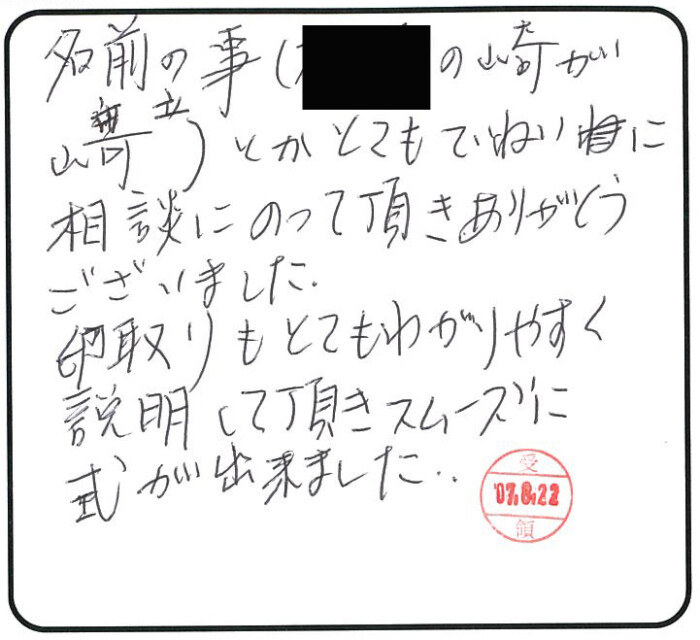 名前の事(の崎が
﨑)とかとてもていねいに
相談にのって頂きありがとう
ございました.
印取りもとてもわかりやすく
説明して頂きスムーズに
式が出来ました..
受
07.8.22
領